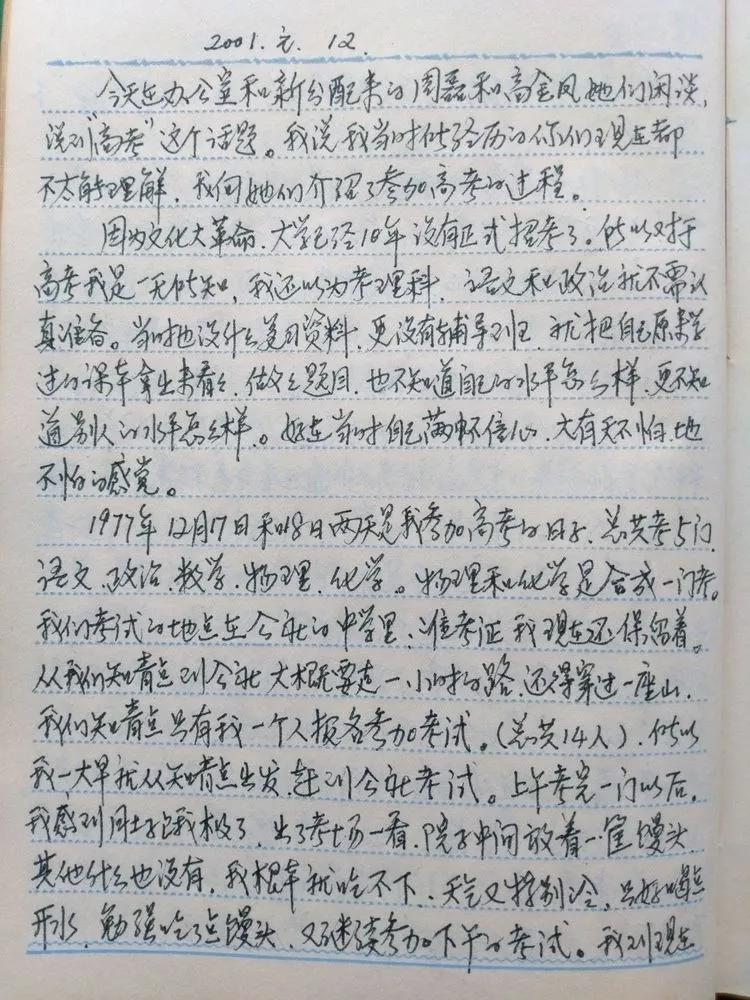 2001.元.12.
今天在办公室和新分配来的周磊和高金凤她们闲谈,
谈到"高考"这个话题。我说我当时所经历的你们现在都
不太能理解,我向她们介绍了参加高考的过程。
因为文化大革命,大学已经10年没有正式招考了。所以对于
高考我是一无所知,我还以为考理科,语文和政治就不需认
真准备。当时也没什么复习资料,更没有辅导班,就把自己原来学
过的课本拿出来看看,做做题目,也不知道自己的水平怎么样,更不知
道别人的水平怎么样。好在当时自己满怀信心,大有天不怕,地
不怕的感觉。
1977年12月17日和18日两天是我参加高考的日子,总共考5门,
语文、政治、数学、物理、化学。物理和化学是合成一门考。
我们考试的地点在公社的中学里,准考证我现在还保留着。
从我们知青点到公社大概要走一小时的路,还得穿过一座山,
我们知青点只有我一个人报名参加考试。(总共14人),所以
我一大早就从知青点出发,赶到公社考试。上午考完一门以后,
我感到肚子饿极了,出了考场一看,院子中间放着一筐馒头,
其他什么也没有,我根本就吃不下,天气又特别冷,只好喝点
开水,勉强吃了点馒头,又继续参加下午的考试。我到现在